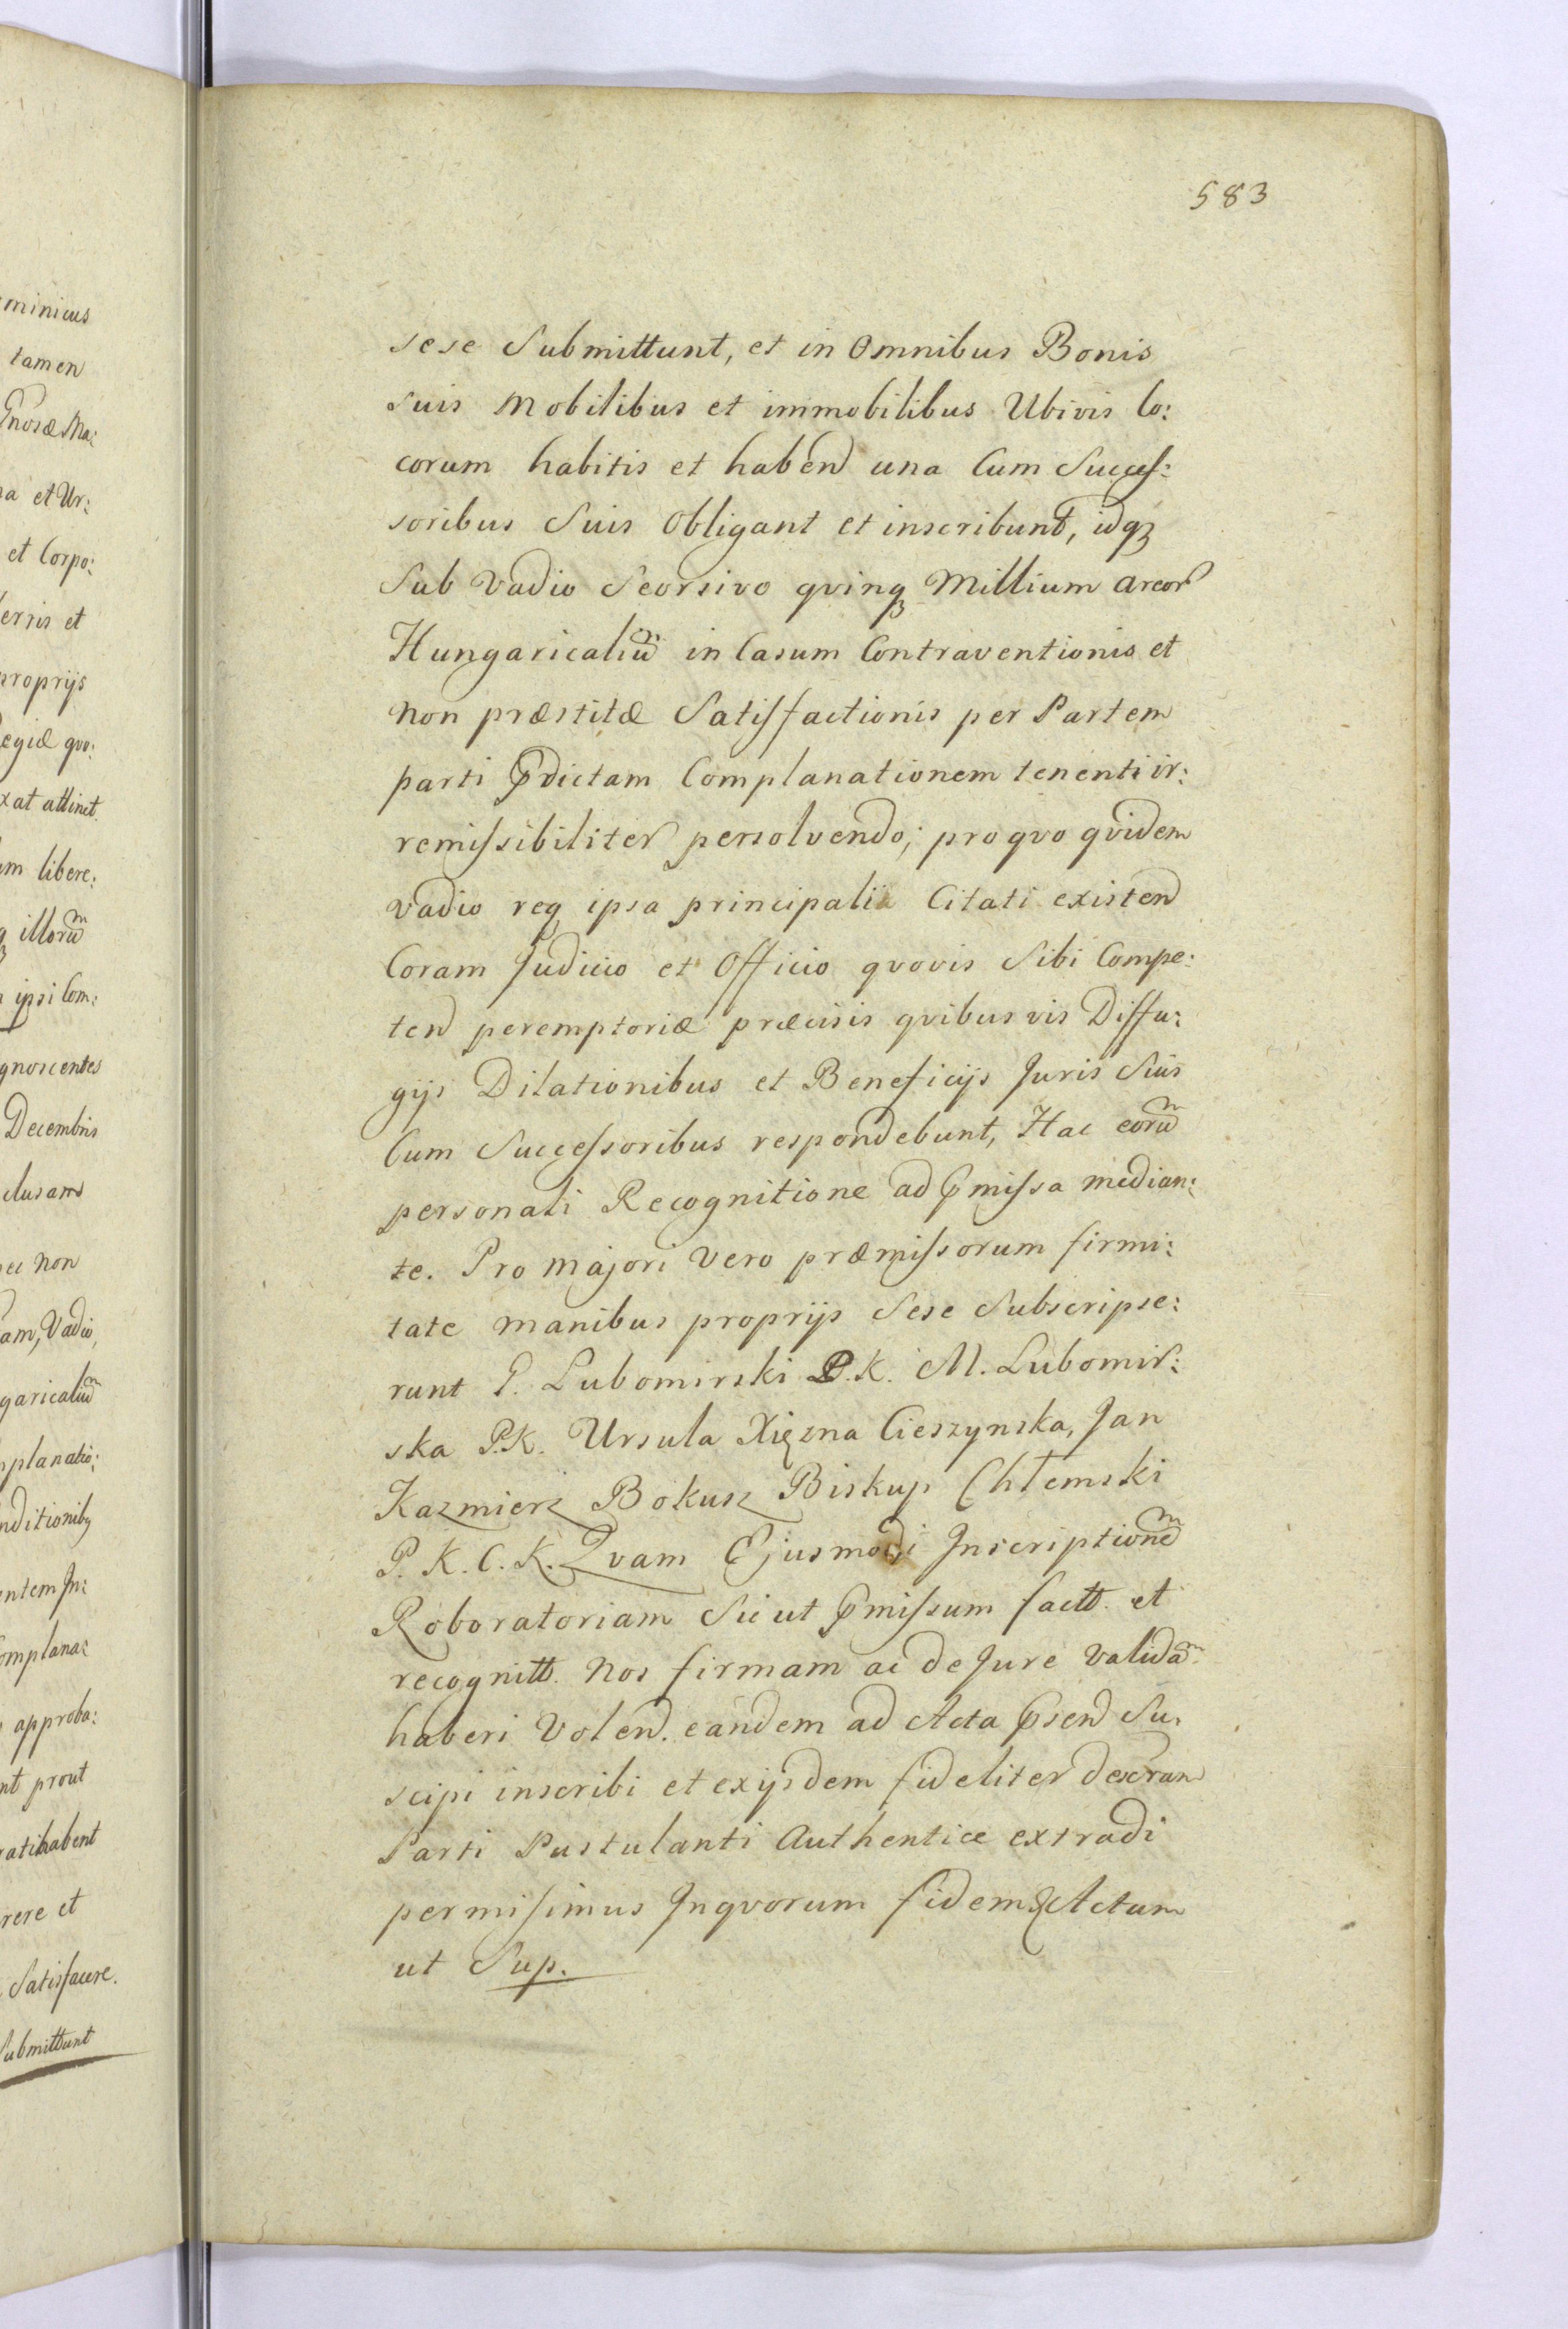 583
minicus
tamen
gnosæ Ma:
na et Ur:
et Corpo:
terris et
proprijs
Regiæ quo:
xat attinet
um libere:
illorum
ipsi Com:
gnoscentes
Decembris
clusam
nec non
am, Vadio,
garicalium
mplanatio:
nditionibq
entem In:
omplana:
approba:
nt prout
ratihabent
rere et
Satisfacere.
Submittunt
sese Submittunt, et in Omnibus Bonis
suis Mobilibus et immobilibus Ubivis lo:
corum habitis et haben una Cum Succes:
soribus Suis Obligant et inscribunt, idq
Sub Vadio Seorsivo qvinq Millium areor
Hungaricaliu͠m in Casum Contraventionis et
non præstitæ Satisfactionis per Partem
parti Pdictam Complanationem tenenti ir:
remissibiliter persolvendo; pro qvo qvidem
Vadio req ipsa principali Citati existen
Coram Judicio et Officio qvovis Sibi Compe:
ten peremptoriæ præcisis qvibus vis Diffu:
gijs Dilationibus et Beneficijs Juris Suis
Cum Successoribus respondebunt, Hac eorum
personali Recognitione ad Pmissa median:
te. Pro majori Vero præmissorum firmi:
tate manibus proprijs Sese Subscripse:
runt J. Lubomirski P.K. M. Lubomir:
ska P.K. Ursula Xięzna Cieszynska, Jan
Kazmierz Bokusz Biskup Chłemski
P. K. C. K. Qvam Ejusmodi Inscriptionem
Roboratoriam Sicut Pmissum factt. et
recognitt. Nos firmam ac de Jure Validam
haberi Volen. eandem ad Acta Psen Su:
scipi inscribi et exijsdem fideliter descran
Parti Pustulanti Authentice extradi
permisimus Inqvorum fidem & Actum
ut Sup.